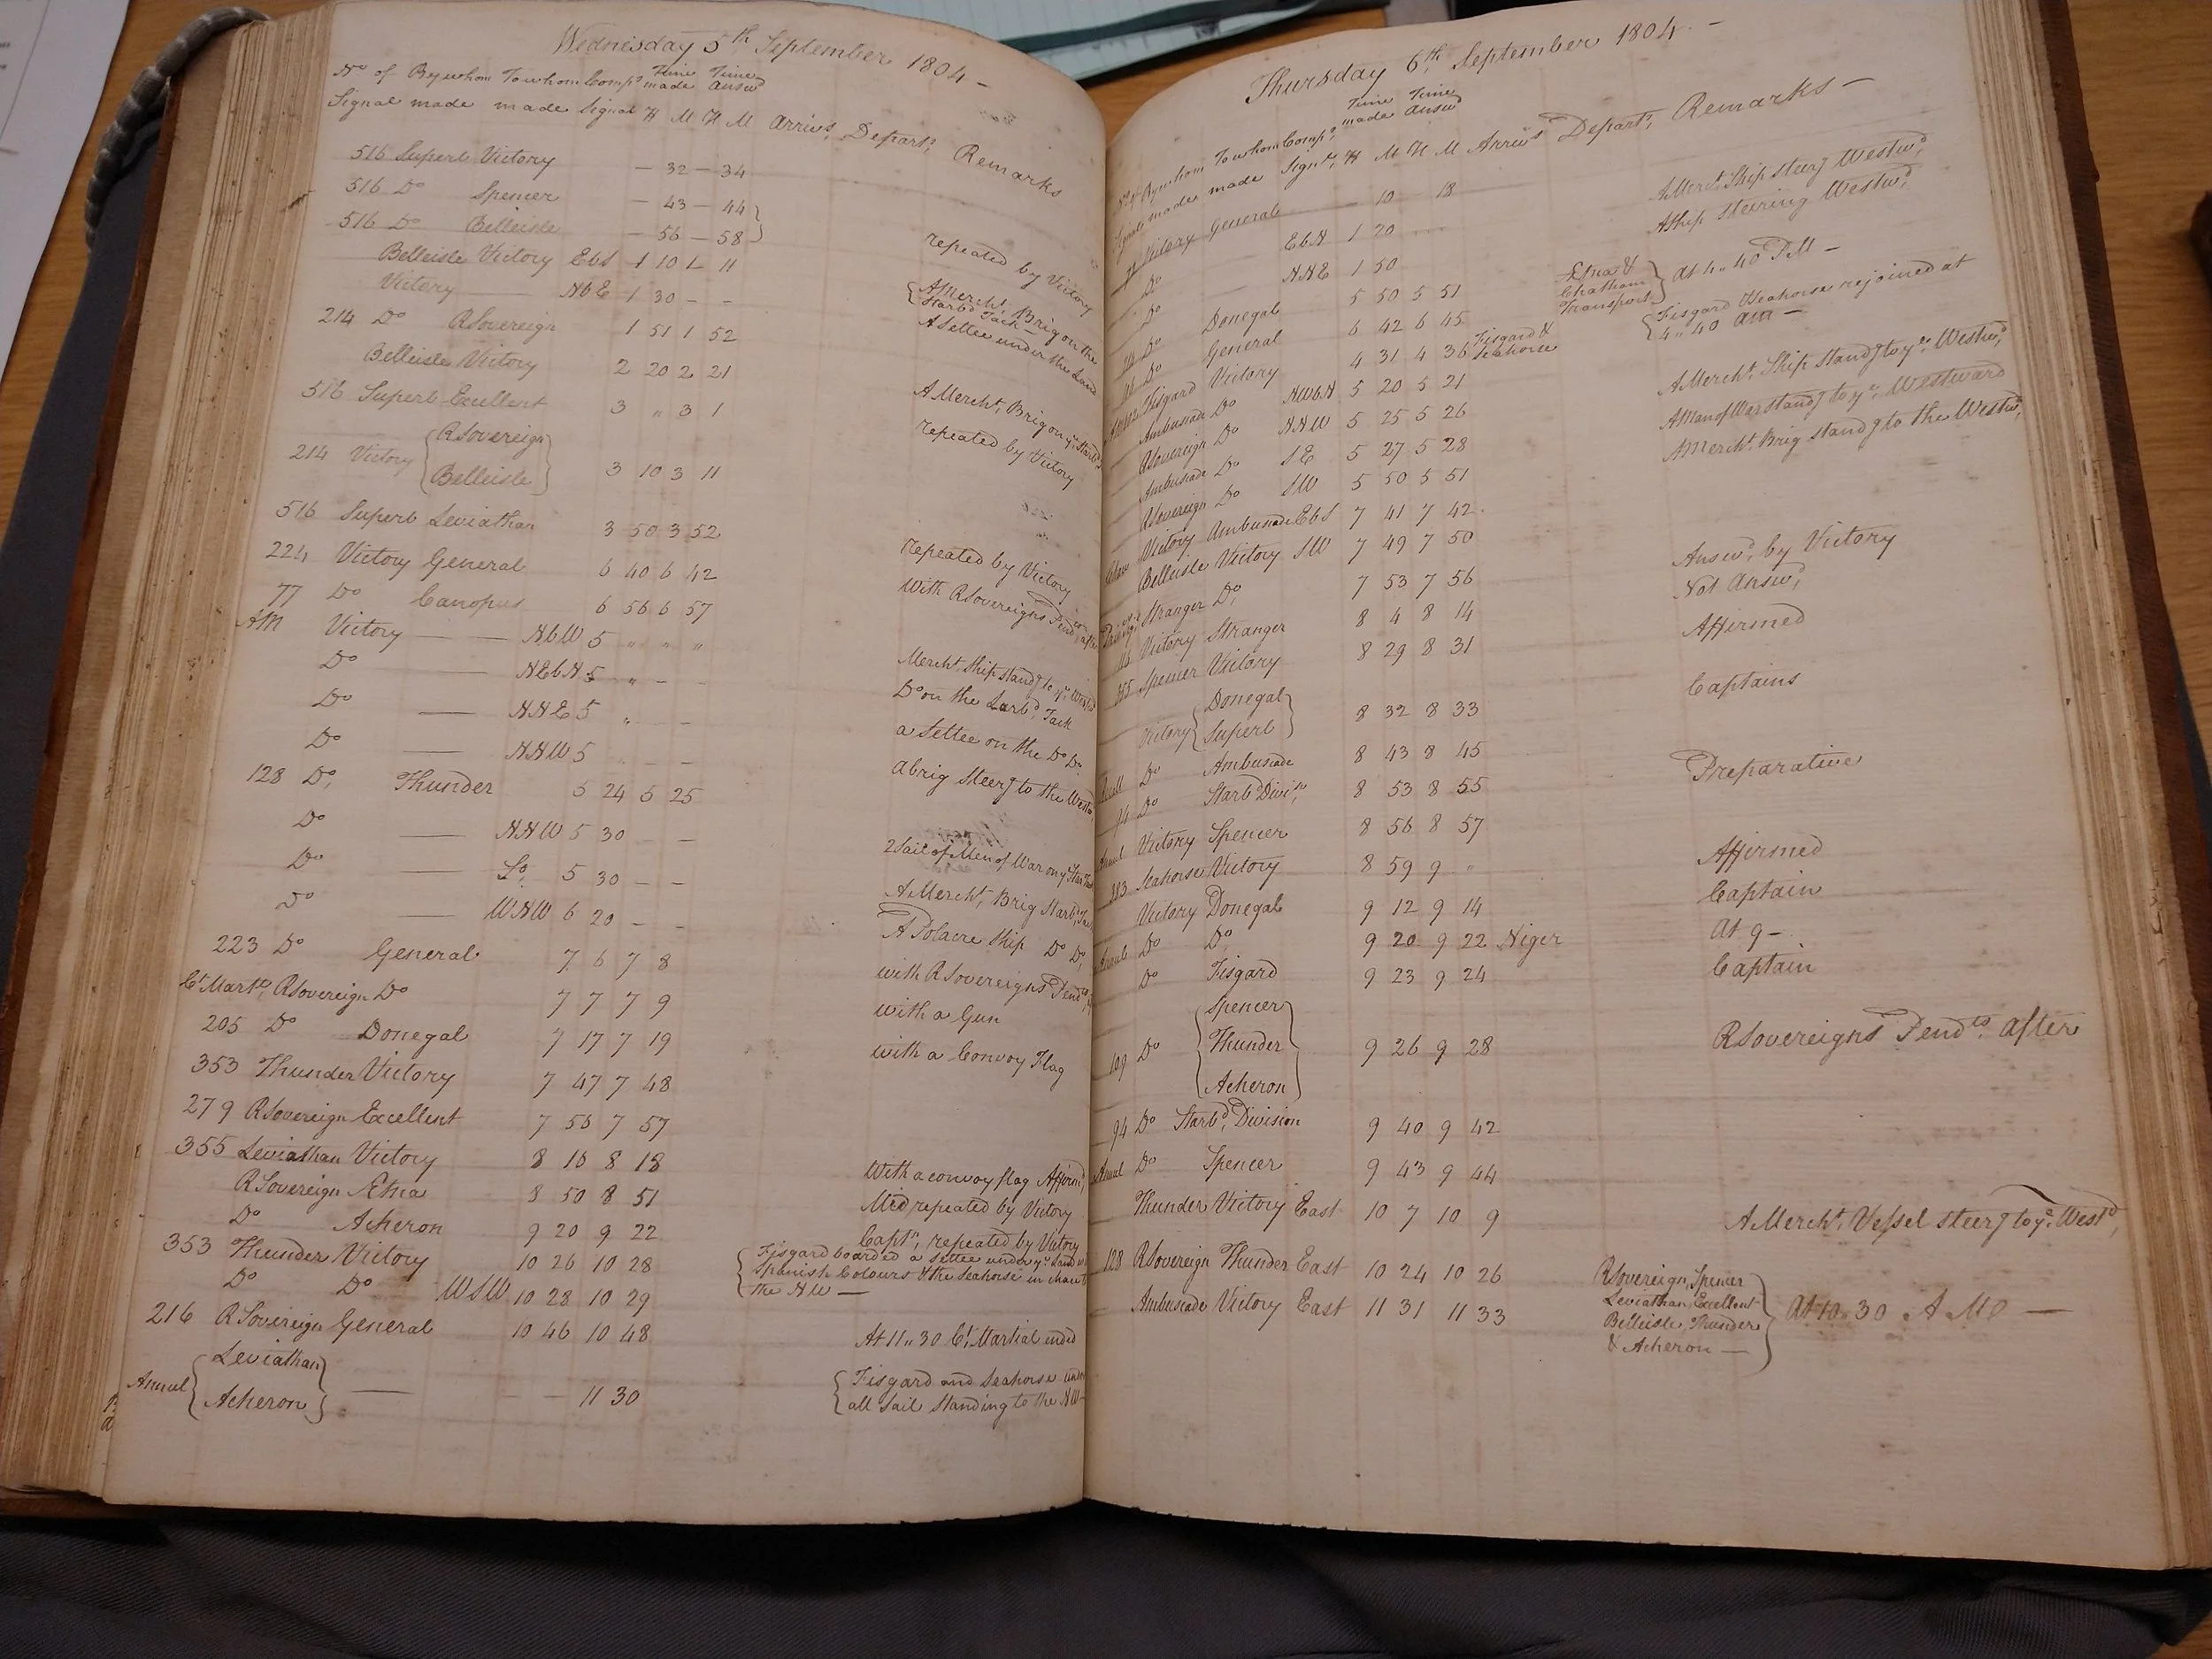 Wednesday 5th September 1804 -
No of By whom To whom Comps Time Time
made Answd
Signal made made Signal H M H M Arrivs Departs Remarks
516 Superb Victory - 32 - 34
516 Do Spencer - 43 - 44
516 Do Belleisle - 56 - 58 repeated by Victory
Belleisle Victory EbS 1 10 1 11 A Mercht Brig on the Starbd Tack -
Victory NbE 1 30 - - A Settee under the Land
214 Do RSovereign 1 51 1 52
Belleisle Victory 2 20 2 21 A Mercht Brig on ye Starbd
516 Superb Excellent 3 " 3 1 repeated by Victory
214 Victory { RSovereign
Belleisle } 3 10 3 11
516 Superb Leviathan 3 50 3 52 repeated by Victory
224 Victory General 6 40 6 42 With RSovereigns Pendts after
77 Do Canopus 6 56 6 57
AM Victory NbW 5 " " " Mercht Ship standg to ye Westd
Do NEbN 5 " - - Do on the Larbd Tack
Do NNE 5 " - - a Settee on the Do Do
Do NNW 5 " - - a brig steerg to the Westwd
128 Do Thunder 5 24 5 25
Do NNW 5 30 - - 2 Sail of Men of War on ye Star Tack
Do So 5 30 - - A Mercht Brig Starbd Tack
Do WNW 6 20 - - A Polacre Ship Do Do
223 Do General 7 6 7 8 with RSovereigns Pendts
Ct Martl RSovereign Do 7 7 7 9 with a Gun
205 Do Donegal 7 17 7 19 with a Convoy Flag
353 Thunder Victory 7 47 7 48
279 RSovereign Excellent 7 55 7 57
355 Leviathan Victory 8 16 8 18 With a convoy flag Affirmd
RSovereign Etna 8 50 8 51 Mid repeated by Victory
Do Acheron 9 20 9 22 Captn repeated by Victory
353 Thunder Victory 10 26 10 28 { Fisgard boarded a Settee under ye Land
Do Do WSW 10 28 10 29 Spanish Colours & the Seahorse in
the NW -
216 RSovereign General 10 46 10 48 At 11 " 30 Ct Martial ended
Annul { Leviathan
Acheron } - - - 11 30 { Fisgard and Seahorse under
all Sail Standing to the NW -
Thursday 6th September 1804 -
No of By whom To whom Comps Time Time
made Answd
Signal made made Signl H M H M Arrivs Departs Remarks -
Victory General 10 - 18
Do EbN 1 20 A Mercht Ship steerg Westwd
Do NNE 1 50 A Ship steering Westwd
Do Donegal 5 50 5 51 Etna & Chatham Transport } At 4 " 40 PM -
Do General 6 42 6 45
Fisgard Victory 4 31 4 36 Fisgard & Seahorse { Fisgard & Seahorse rejoined at
4 " 40 AM -
Ambuscade Do NWbN 5 20 5 21 A Mercht Ship standg to ye Westwd
RSovereign Do NNW 5 25 5 26 A Man of War standg to ye Westward
Ambuscade Do SE 5 27 5 28 A Mercht Brig standg to the Westwd
RSovereign Do SW 5 50 5 51
Victory Ambuscade EbS 7 41 7 42
Belleisle Victory SW 7 49 7 50
Stranger Do 7 53 7 56 Answd by Victory
Victory Stranger 8 4 8 14 Not Answd
355 Spencer Victory 8 29 8 31 Affirmed
Victory { Donegal
Superb } 8 32 8 33 Captains
Do Ambuscade 8 43 8 45
94 Do Starbd Divisn 8 53 8 55 Preparative
Annul Victory Spencer 8 56 8 57
383 Seahorse Victory 8 59 9 " Affirmed
Victory Donegal 9 12 9 14 Captain
Annul Do Do 9 20 9 22 Niger At 9 -
Do Fisgard 9 23 9 24 Captain
109 Do { Spencer
Thunder 9 26 9 28 RSovereigns Pendts after
Acheron }
94 Do Starbd Division 9 40 9 42
Annul Do Spencer 9 43 9 44
Thunder Victory East 10 7 10 9 A Mercht Vessel steerg to ye Westd
128 RSovereign Thunder East 10 24 10 26
Ambuscade Victory East 11 31 11 33
RSovereign, Spencer
Leviathan, Excellent
Belleisle, Thunder
& Acheron - } At 10 " 30 AM -